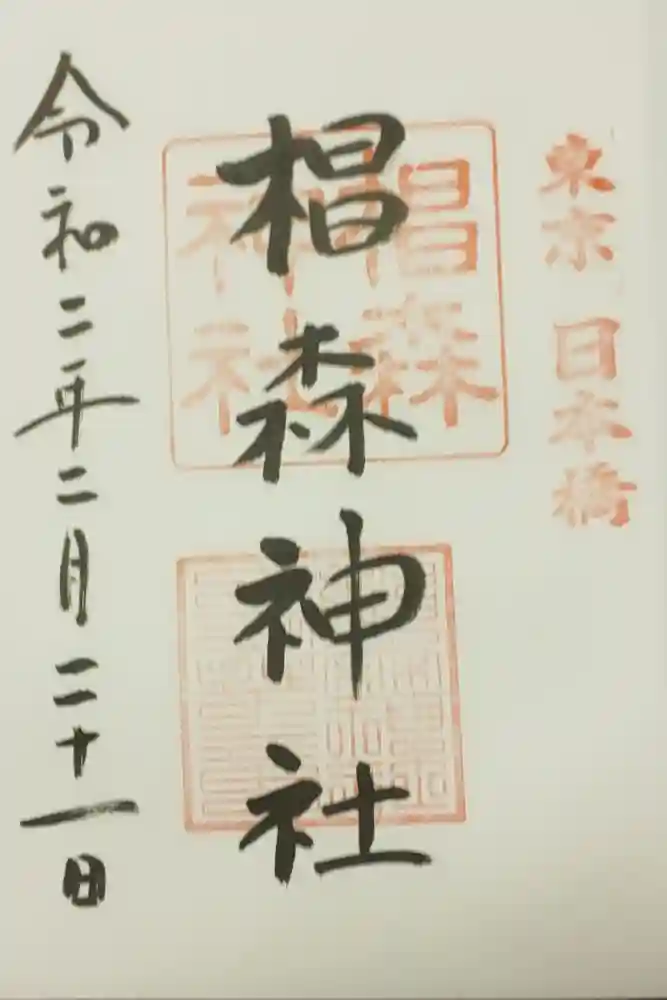 東京 日本橋
椙森神社
椙森
神社
令和二年二月二十一日